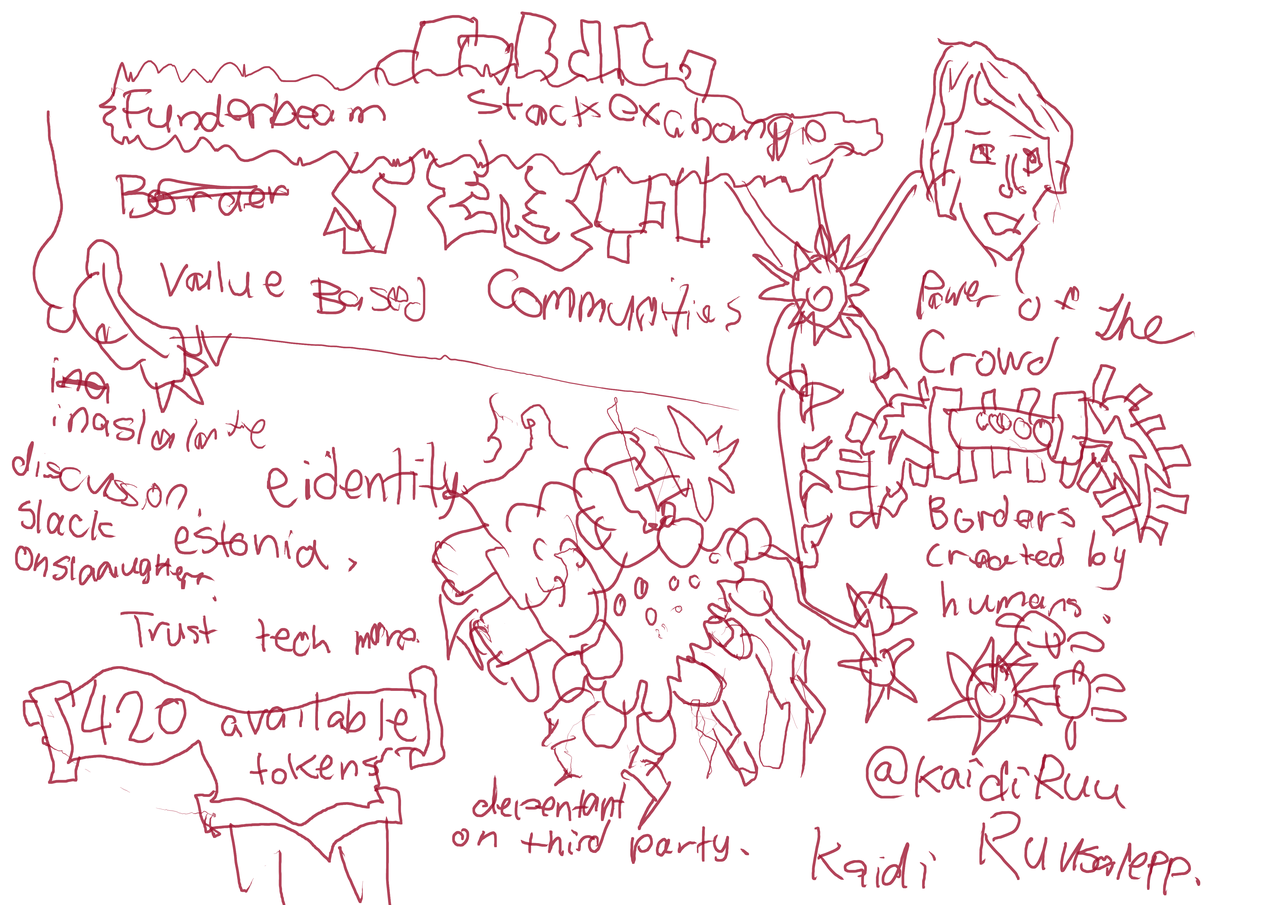 Funderbeam Stacksexchange
Border
Value Based Communities
Power of the
Crowd
discusson.
eidentity
Slack estonia,
Borders
created by
humans.
Trust tech more.
420 available
tokens
@KaidiRuu
on third party.
Kaidi Ruusalepp.